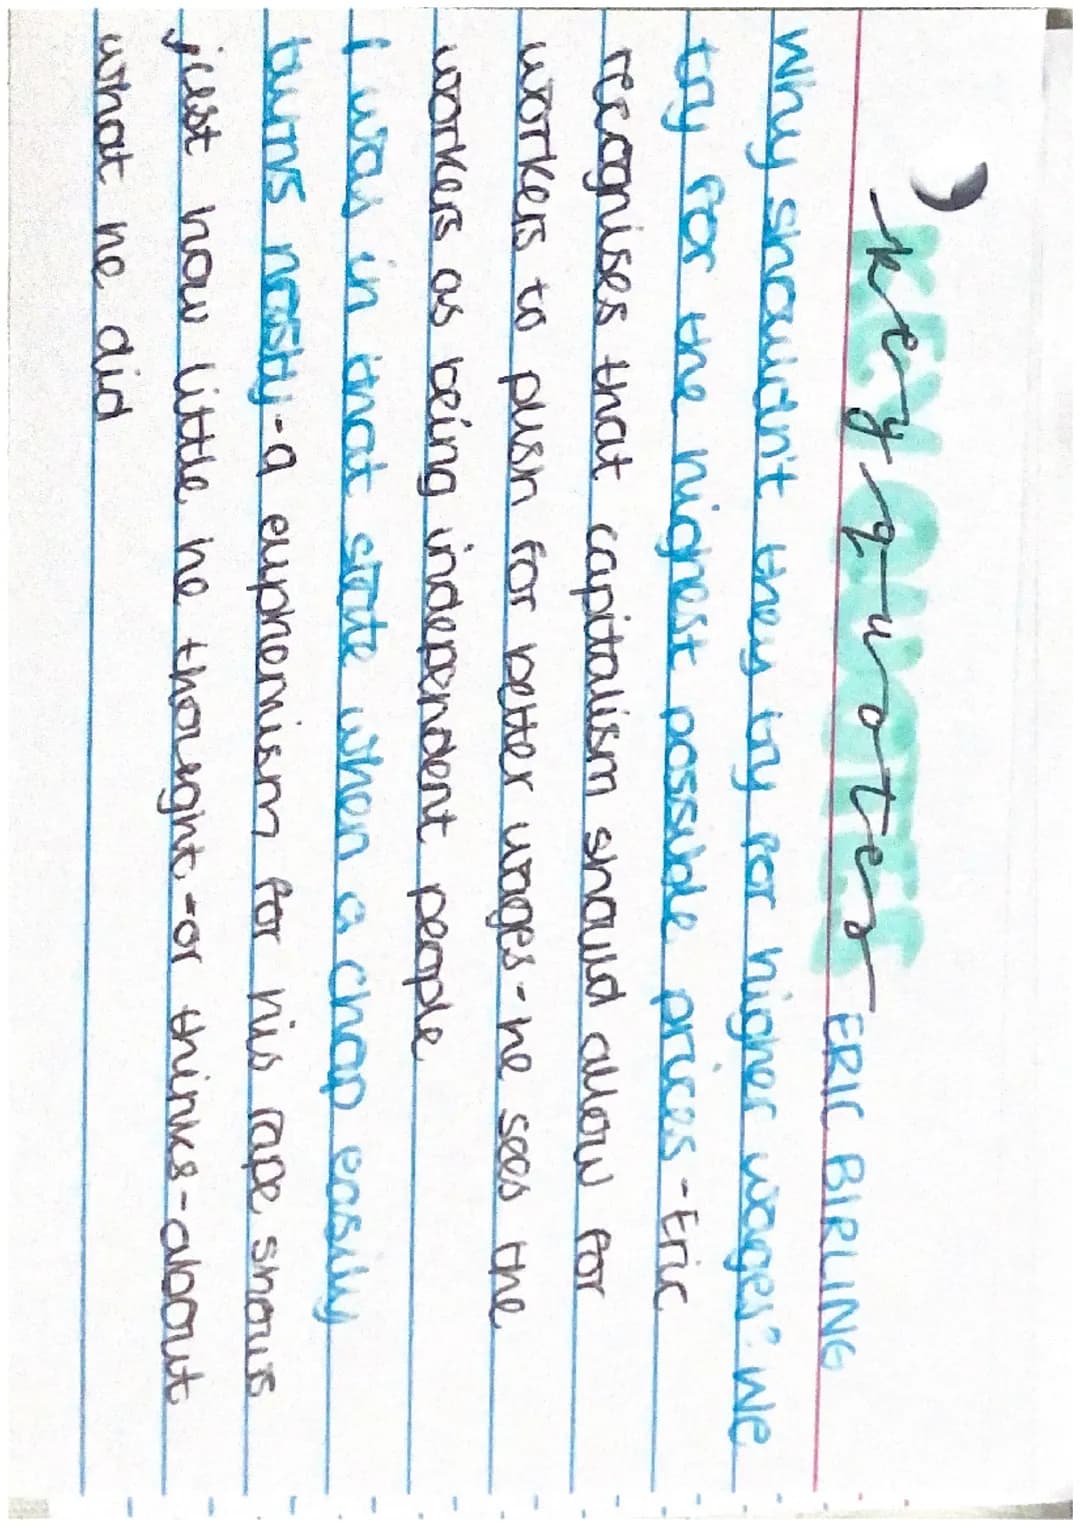 KEY QUOTES
key quotes ERIC BIRLING
Why shouldn't they try for higher wages? We
try for the highest possible prices - Eric
recognises that capitalism should allow for
workers to push for better wages - he sees the
workers as being independent people
I was in that state when a chap easily
turns nasty - a euphemism for his rape, shows
just how little he thought - or thinks - about
what he did